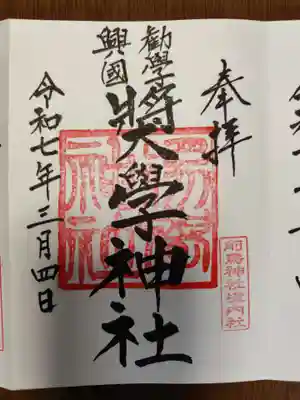 奉拝
勸學
興國
奬學神社
令和七年三月四日
前鳥神社境内社